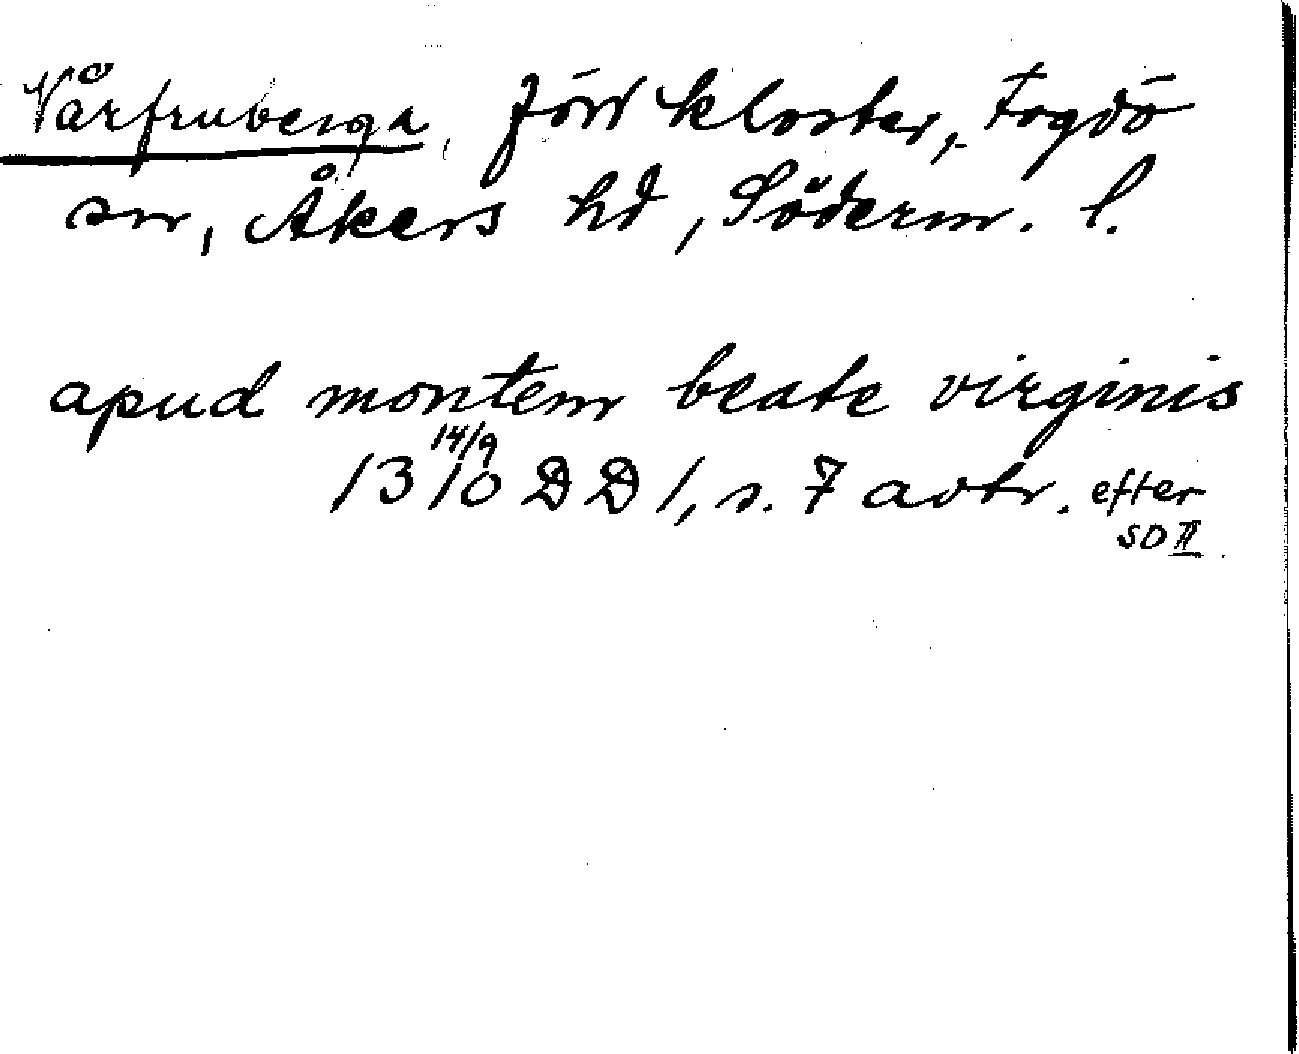 Vårfruberga, förr kloster, Fogdö
sn, Åkers hd, Söderm. l.
apud montem beate virginis
14/9
1310 DD 1, s. 7 avtr. efter
SD II